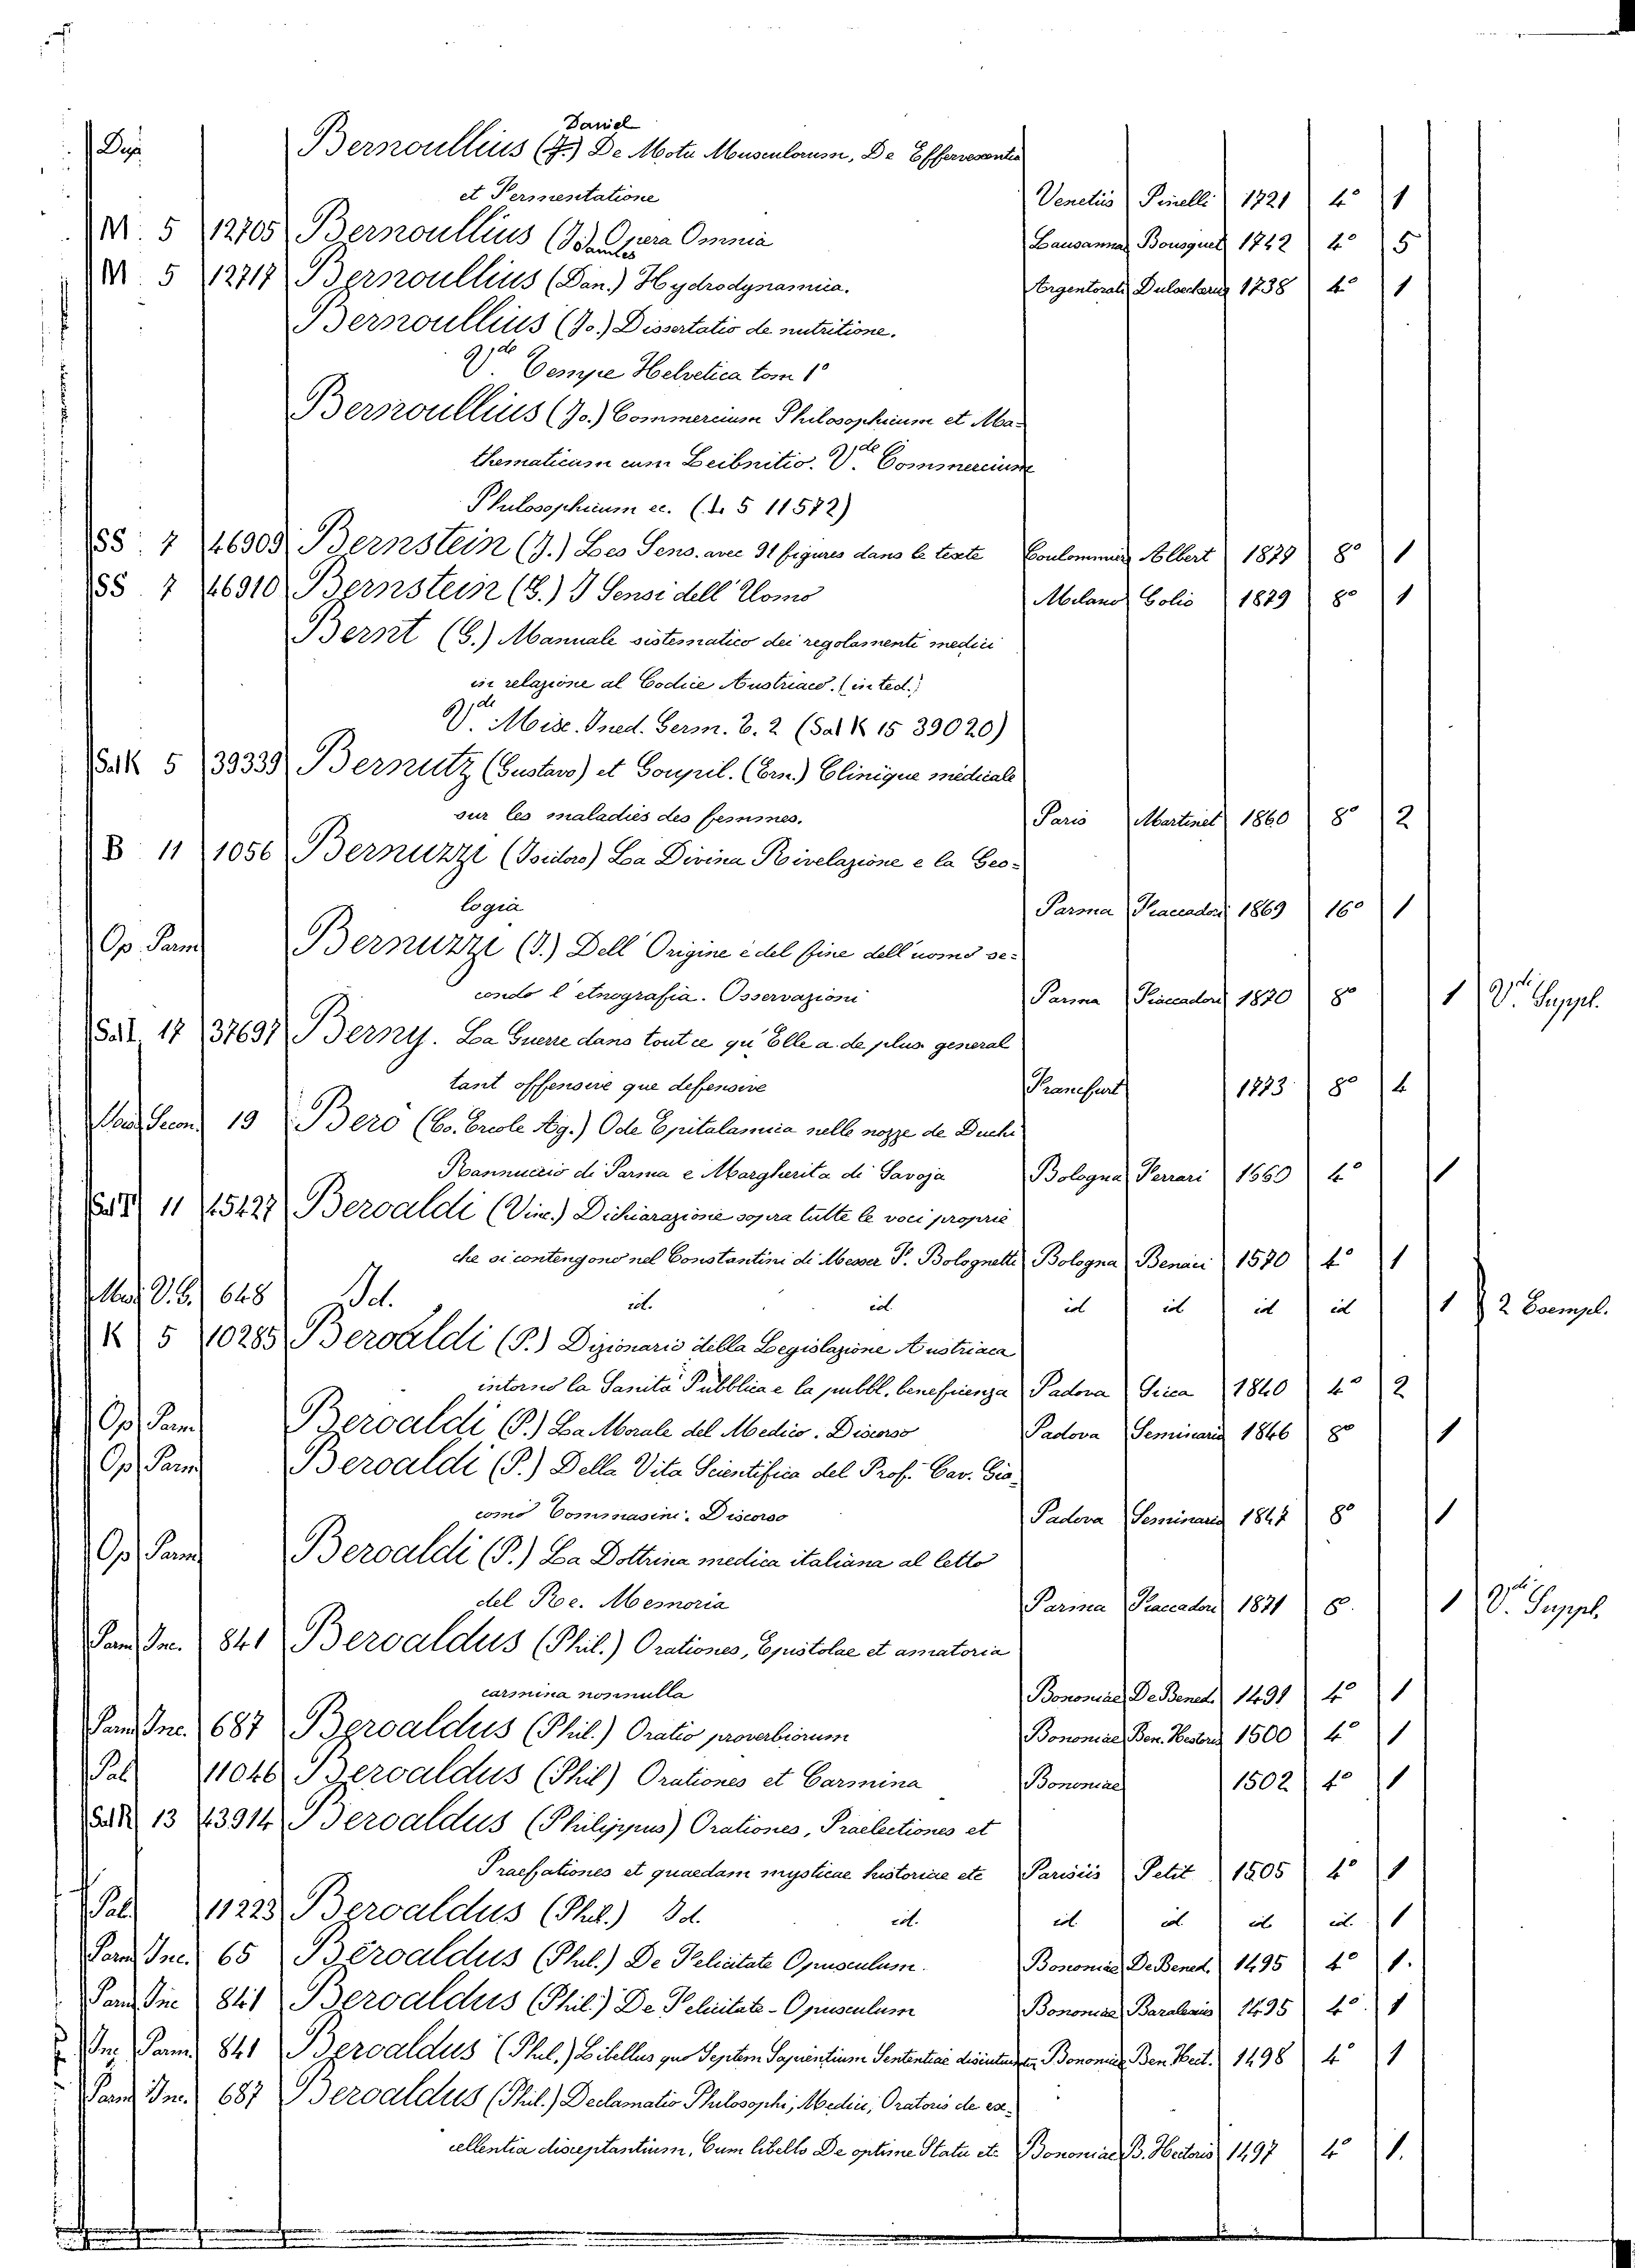 Daniel
Dup Bernoullius (J.) De Motu Musculorum, De Effervescentia
et Fermentatione Venetiis Pinelli 1721 4° 1
M. 5 12705 Bernoullius (Joannes Opera Omnia Lausannae Bousquet 1742 4° 5
M. 5 12717 Bernoullius (Dan.) Hydrodynamica. Argentorati Dulseckerus 1738 4° 1
Bernoullius (Jo.) Dissertatio de nutritione.
V.de Tempe Helvetica tom 1°
Bernoullius (Jo.) Commercium Philosophicum et Ma-
thematicum cum Leibnitio. V.de Commercium
Philosophicum ec. (L. 5 11572)
SS. 7 46909 Bernstein (J.) Les Sens. avec 91 figures dans le texte Coulommiers Albert 1879 8° 1
SS. 7 46910 Bernstein (G.) I Sensi dell'Uomo Milano Golio 1879 8° 1
Bernt (G.) Manuale sistematico dei regolamenti medici
in relazione al Codice Austriaco. (in ted.)
V.de Misc. Ined. Germ. T. 2 (Sal. K 15 39020)
Sal. K 5 39339 Bernutz (Gustavo) et Goupil. (Ern.) Clinique médicale
sur les maladies des femmes. Paris Martinet 1860 8° 2
B 11 1056 Bernuzzi (Isidoro) La Divina Rivelazione e la Geo-
logia Parma Fiaccadori 1869 16° 1
Op. Parm Bernuzzi (I.) Dell'Origine e del fine dell'uomo se-
condo l'etnografia. Osservazioni Parma Fiaccadori 1870 8° 1 V.di Suppl.
Sal. I. 17 37697 Berny. La Guerre dans tout ce qu'Elle a de plus general
tant offensive que defensive Francfurt 1773 8° 4
19 Berò (Co. Ercole Ag.) Ode Epitalamica nelle nozze de Duchi
Rannuccio di Parma e Margherita di Savoja Bologna Ferrari 1660 4° 1
11 45427 Beroaldi (Vinc.) Dichiarazione sopra tutte le voci proprie
che si contengono nel Constantini di Messer F. Bolognetti Bologna Benacci 1570 4° 1
Misc. V. G. 648 Id. id. id. id id id id 1 2 Esempl.
K 5 10285 Beroaldi (P.) Dizionario della Legislazione Austriaca
intorno la Sanità Pubblica e la pubbl. beneficenza Padova Sicca 1840 4° 2
Op. Parm Beroaldi (P.) La Morale del Medico. Discorso Padova Seminario 1846 8° 1
Op. Parm Beroaldi (P.) Della Vita Scientifica del Prof. Cav. Gia-
como Tommasini. Discorso Padova Seminario 1847 8° 1
Op. Parm Beroaldi (P.) La Dottrina medica italiana al letto
del Re. Memoria Parma Fiaccadori 1871 8. 1 V.di Suppl.
Parm. Inc. 841 Beroaldus (Phil.) Orationes, Epistolae et amatoria
carmina nonnulla Bononiae De Bened. 1491 4° 1
Parm. Inc. 687 Beroaldus (Phil.) Oratio proverbiorum Bononiae Ben. Hectoris 1500 4° 1
Pal. 11046 Beroaldus (Phil) Orationes et Carmina Bononiae 1502 4° 1
13 43914 Beroaldus (Philippus) Orationes, Praelectiones et
Praefationes et quaedam mysticae historiae etc Parisiis Petit 1505 4° 1
Pal. 11223 Beroaldus (Phil.) Id. id. id. id. id. id. 1
Parm. Inc. 65 Beroaldus (Phil.) De Felicitate Opusculum. Bononiae De Bened. 1495 4° 1.
Parm. Inc 841 Beroaldus (Phil.) De Felicitate-Opusculum Bononiae 1495 4°. 1
Inc. Parm. 841 Beroaldus (Phil.) Libellus quo Septem Sapientium Sententiae discutiuntur Bononiae Ben. Hect. 1498 4° 1
Parm. Inc. 687 Beroaldus (Phil.) Declamatio Philosophi, Medici, Oratoris de ex-
cellentia disceptantium, Cum libello De optime Statu etc Bononiae B. Hectoris 1497 4° 1.